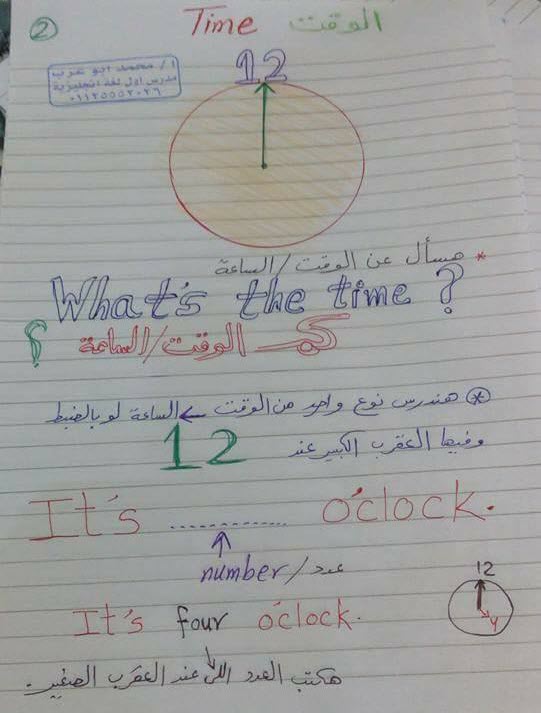 ②
Time الوقت
أ/محمد ابو عرب
مدرس اول لغة انجليزية
12
* هسأل عن الوقت/الساعة
What's the time ?
كم الوقت/الساعة ؟
* هندرس نوع واحد من الوقت ← الساعة لو بالضبط
وفيها العقرب الكبير عند 12
It's ............... o'clock.
number/عدد
12
4
It's four o'clock.
هكتب العدد اللى عند العقرب الصغير.